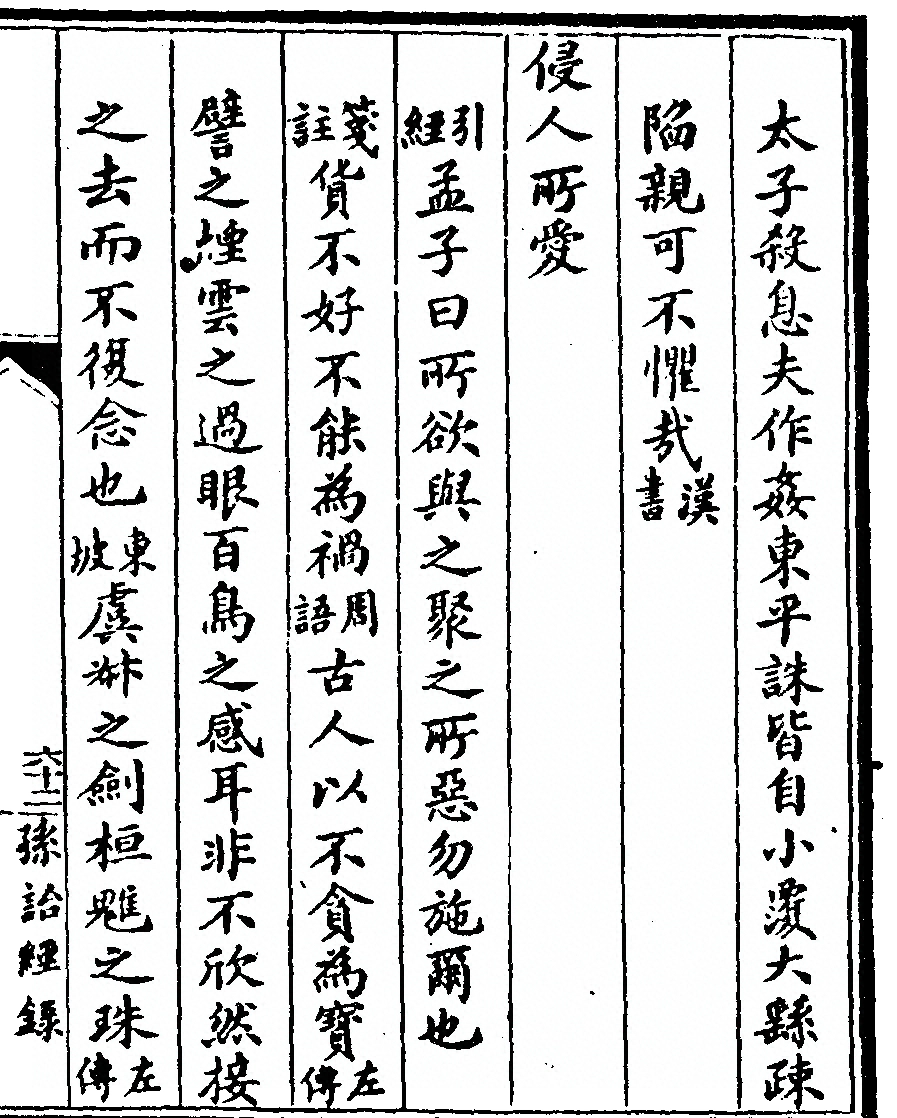 太子殺息夫作姦東平誅皆自小覆大繇疎
陷親可不懼哉漢書
侵人所愛
引經孟子曰所欲與之聚之所惡勿施爾也
箋註貨不好不能為禍周語古人以不貪為寶左傳
譬之煙雲之過眼百鳥之感耳非不欣然接
之去而不復念也東坡虞叔之劍桓魋之珠左傳
六十二
孫詒經錄